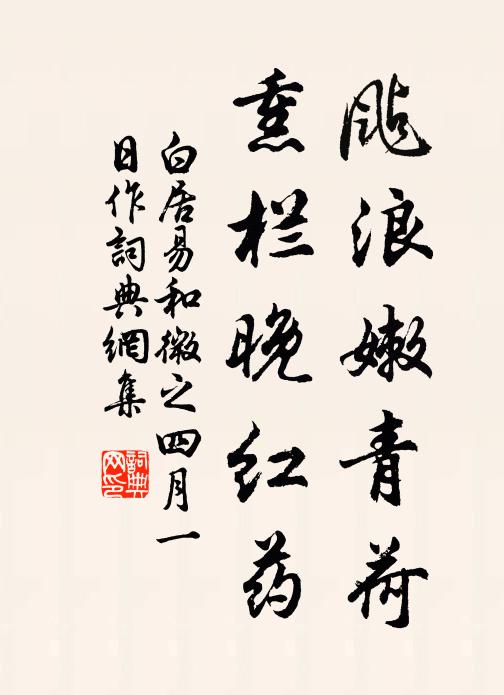 飐浪嫩青荷
熏栏晚红药
白居易和微之四月一
日作詞典網集
詞典
网印